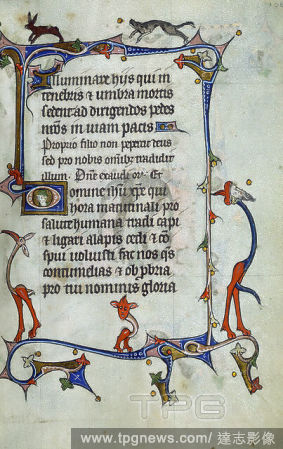 Illuminare hijs qui in
tenebris & umbra mortis
sedent ad dirigendos pedes
nr̄os in uiam pacis
Proprio filio non pepercit deus
sed pro nobis om̄ibz tradidit
illum. Dn̄e exaudi or. Et
Domine ihū xp̄e qui
hora matutinali pro
salute humana tradi capi
& ligari alapis cedi & cō
spui uoluisti fac nos q̄s
contumelias & obp̄bria
pro tui nominis gloria
TPG
www.tpgnews.com/達志影像